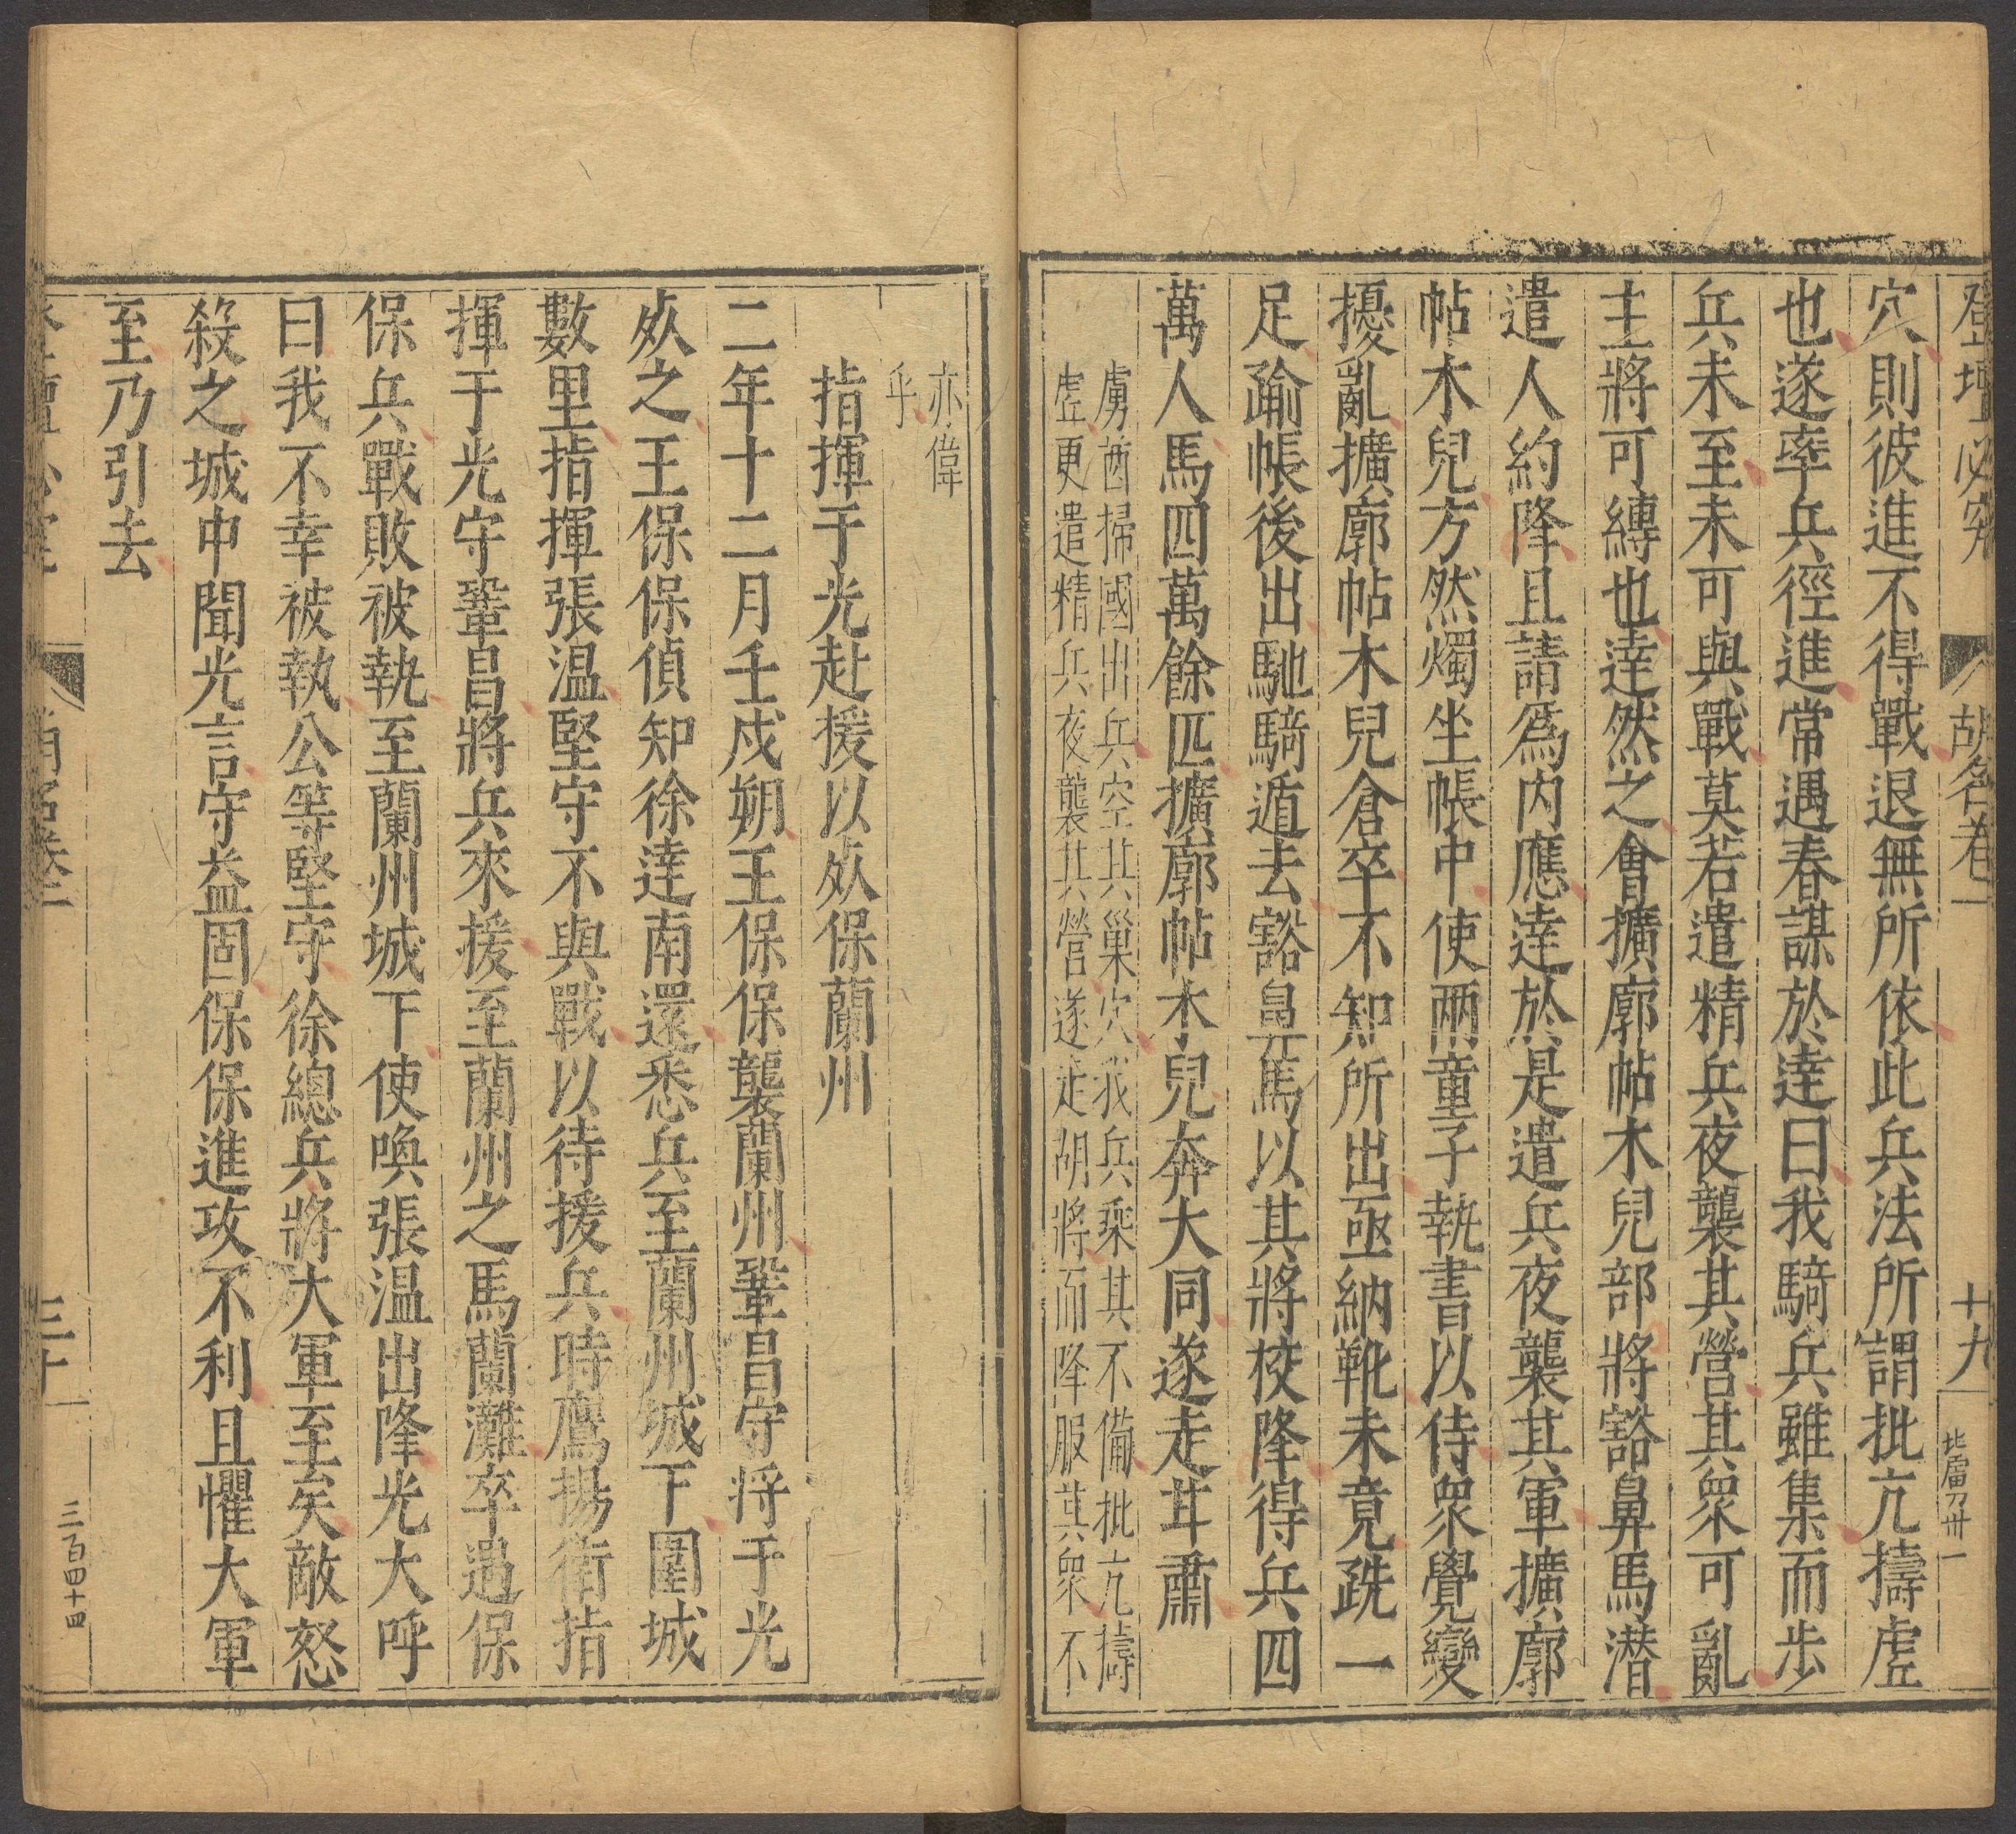 登壇必究 胡名卷一 十九
穴則彼進不得戰退無所依此兵法所謂批亢擣虛
也遂率兵徑進常遇春謀於達曰我騎兵雖集而步
兵未至未可與戰莫若遣精兵夜襲其營其衆可亂
主將可縛也達然之會擴廓帖木兒部將豁鼻馬潛
遣人約降且請爲内應達於是遣兵夜襲其軍擴廓
帖木兒方然燭坐帳中使兩童子執書以侍衆覺變
擾亂擴廓帖木兒倉卒不知所出亟納靴未竟跣一
足踰帳後出馳騎遁去豁鼻馬以其將校降得兵四
萬人馬四萬餘匹擴廓帖木兒奔大同遂走甘肅
虜酋掃國出兵空其巢穴我兵乘其不備批亢擣
虛更遣精兵夜襲其營遂走胡將而降服其衆不
亦偉
乎
指揮于光赴援以㱕保蘭州
二年十二月壬戍朔王保保襲蘭州鞏昌守将于光
㱕之王保保偵知徐達南還悉兵至蘭州城下圍城
數里指揮張温堅守不與戰以待援兵時鷹揚衛指
揮于光守鞏昌將兵來援至蘭州之馬蘭灘卒遇保
保兵戰敗被執至蘭州城下使喚張温出降光大呼
曰我不幸被執公等堅守徐總兵將大軍至矣敵怒
殺之城中聞光言守益固保保進攻不利且懼大軍
至乃引去
三十
三百四十四